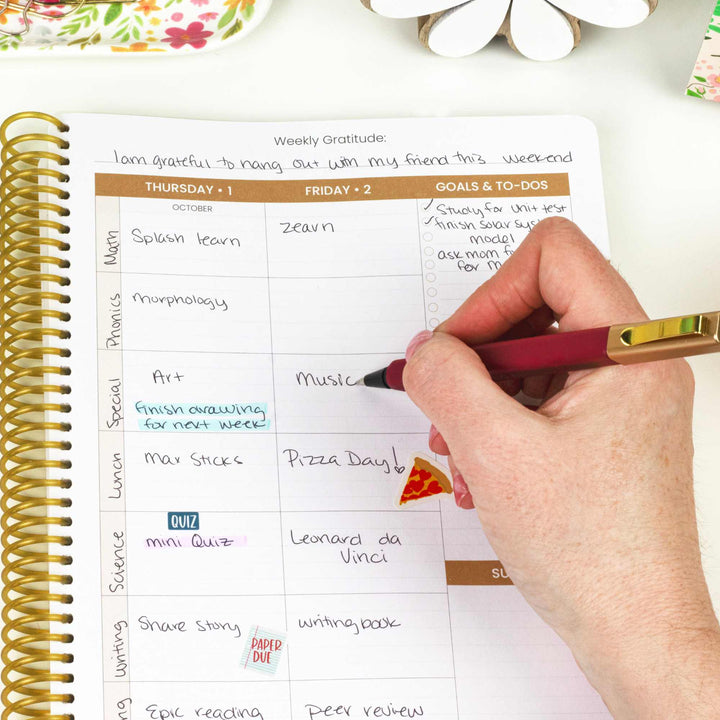 Weekly Gratitude:
I am grateful to hang out with my friend this weekend
THURSDAY • 1
FRIDAY • 2
GOALS & TO-DOS
OCTOBER
Study for Unit test
finish solar sys
model
ask mom f
for m
Math
Splash learn
zearn
Phonics
morphology
Special
Art
finish drawing
for next week
Music
Lunch
Mar Sticks
Pizza Day!
Science
QUIZ
mini Quiz
Leonard da
Vinci
SU
Writing
Share Story
PAPER
DUE
writing book
ng
Epic reading
peer review